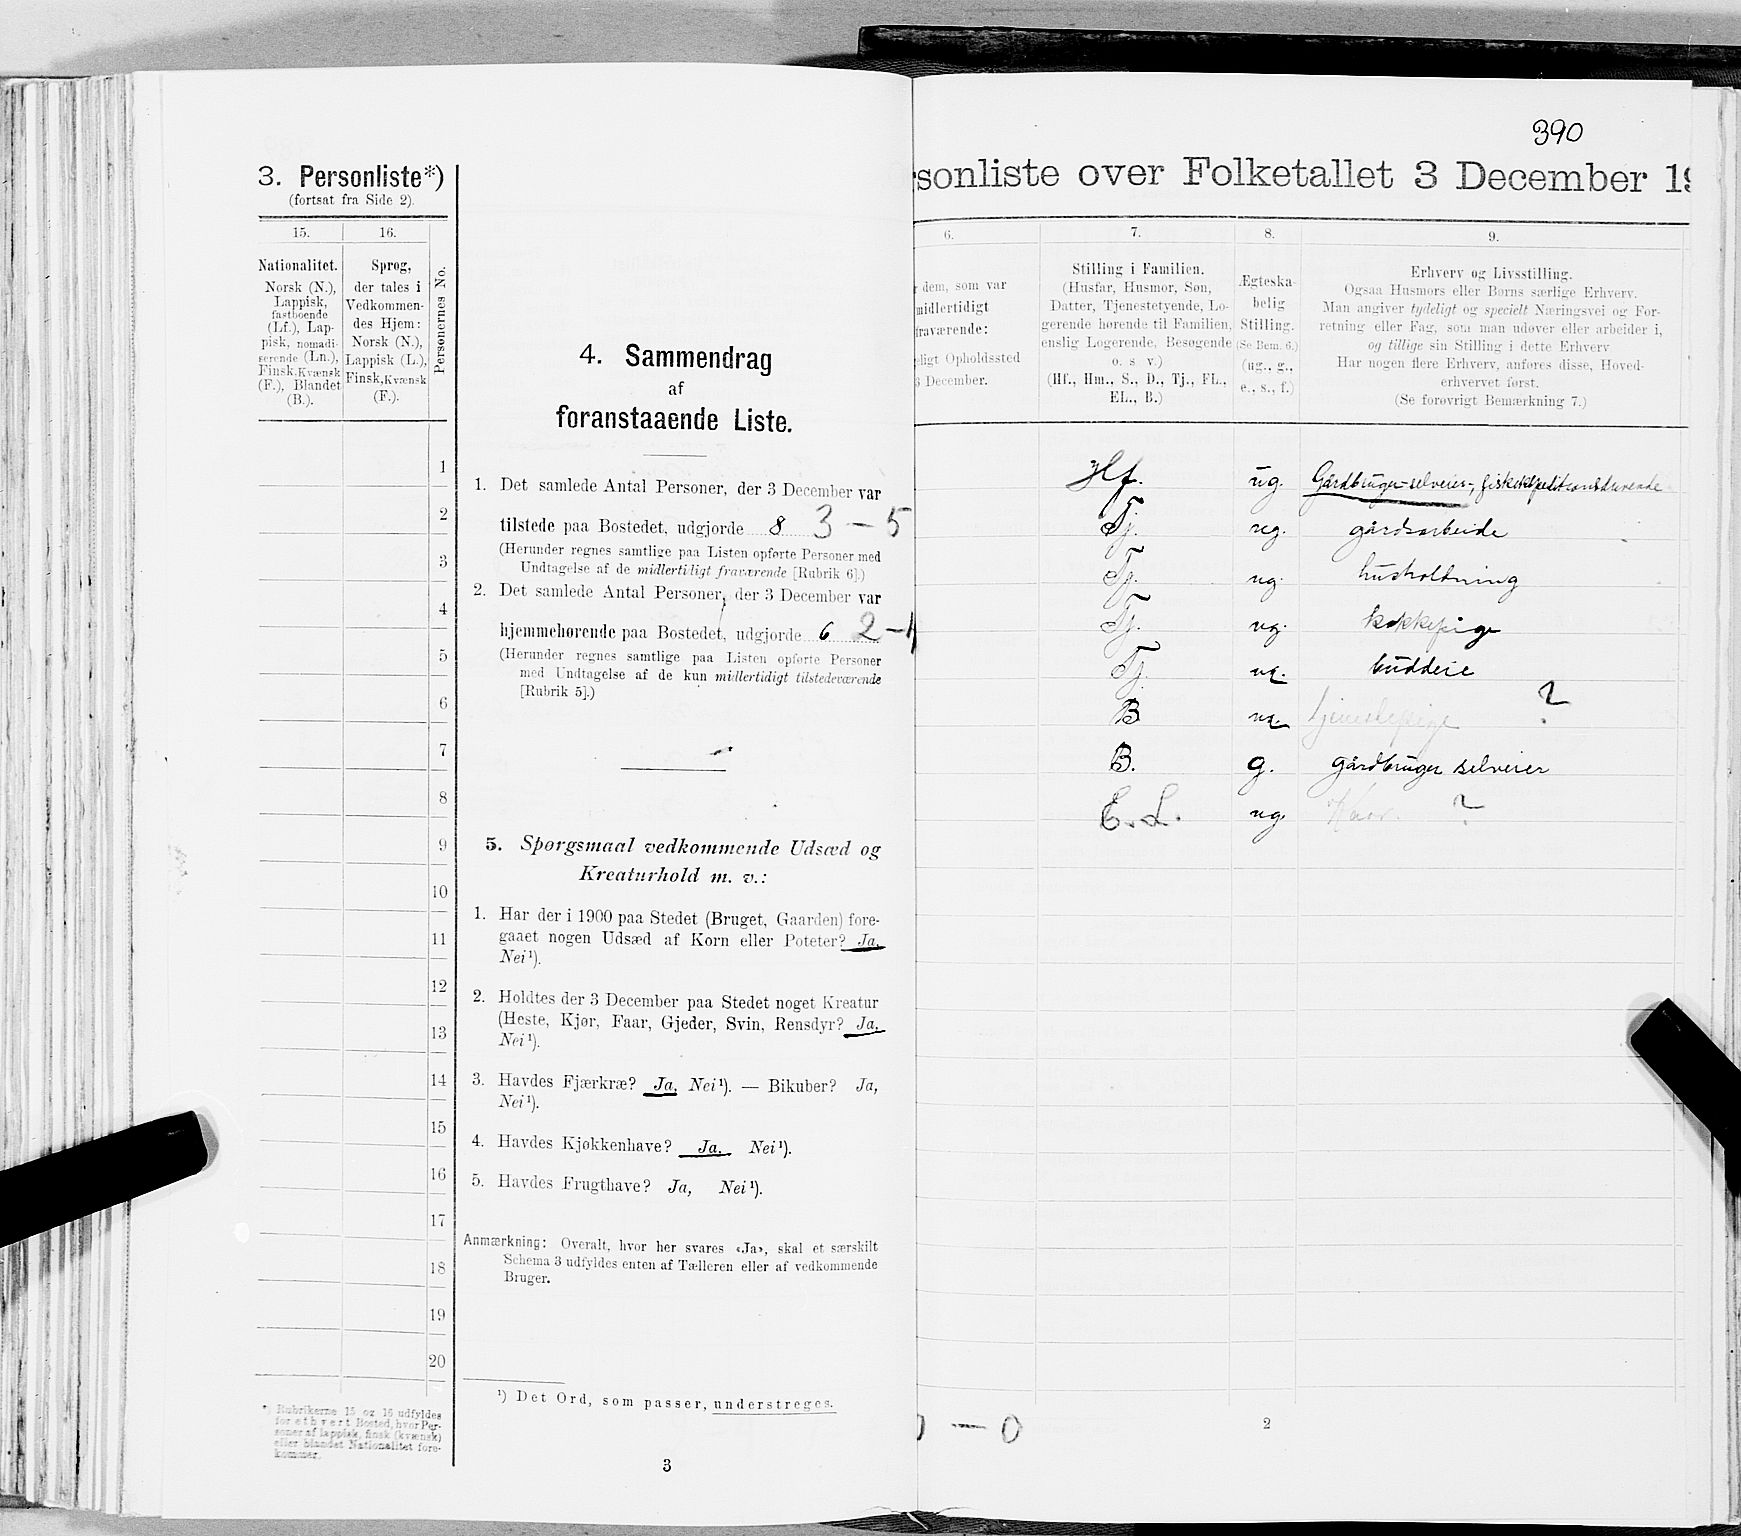 3. Personliste*)
(fortsat fra Side 2).
15.
16.
Nationalitet.
Norsk (N.),
Lappisk,
fastboende
(Lf.), Lap-
pisk, nomadi-
serende (Ln.),
Finsk, Kvænsk
(F.), Blandet
(B.).
Sprog,
der tales i
Vedkommen-
des Hjem:
Norsk (N.),
Lappisk (L.),
Finsk, Kvænsk
(F.).
Personernes No.
1
2
3
4
5
6
7
8
9
10
11
12
13
14
15
16
17
18
19
20
*) Rubrikerne 15 og 16 udfyldes
for ethvert Bosted, hvor Per-
soner af lappisk, finsk (kvænsk)
eller blandet Nationalitet fore-
kommer.
4. Sammendrag
af
foranstaaende Liste.
1. Det samlede Antal Personer, der 3 December var
tilstede paa Bostedet, udgjorde 8 3 — 5
(Herunder regnes samtlige paa Listen opførte Personer med
Undtagelse af de midlertidigt fraværende [Rubrik 6].)
2. Det samlede Antal Personer, der 3 December var
hjemmehørende paa Bostedet, udgjorde 6 2 —
(Herunder regnes samtlige paa Listen opførte Personer
med Undtagelse af de kun midlertidigt tilstedeværende
[Rubrik 5].)
5. Spørgsmaal vedkommende Udsæd og
Kreaturhold m. v.:
1. Har der i 1900 paa Stedet (Bruget, Gaarden) fore-
gaaet nogen Udsæd af Korn eller Poteter? Ja,
Nei¹).
2. Holdtes der 3 December paa Stedet noget Kreatur
(Heste, Kjør, Faar, Gjeder, Svin, Rensdyr? Ja,
Nei¹).
3. Havdes Fjærkræ? Ja, Nei¹). — Bikuber? Ja,
Nei¹).
4. Havdes Kjøkkenhave? Ja. Nei¹).
5. Havdes Frugthave? Ja, Nei¹).
Anmærkning: Overalt, hvor her svares «Ja», skal et særskilt
Schema 3 udfyldes enten af Tælleren eller af vedkommende
Bruger.
¹) Det Ord, som passer, understreges.
3
390
sonliste over Folketallet 3 December 19
6.
7.
8.
9.
dem, som var
midlertidigt
fraværende:
ligt Opholdssted
3 December.
Stilling i Familien.
(Husfar, Husmor, Søn,
Datter, Tjenestetyende, Lo-
gerende hørende til Familien,
enslig Logerende, Besøgende
o. s v.)
(Hf., Hm., S., D., Tj., FL.,
EL., B.)
Ægteska-
belig
Stilling.
(Se Bem. 6.)
(ug., g.,
e., s., f.)
Erhverv og Livsstilling.
Ogsaa Husmors eller Børns særlige Erhverv.
Man angiver tydeligt og specielt Næringsvei og For-
retning eller Fag, som man udøver eller arbeider i,
og tillige sin Stilling i dette Erhverv
Har nogen flere Erhverv, anføres disse, Hoved-
erhvervet først.
(Se forøvrigt Bemærkning 7.)
Hf. ug. Gårdbruger-selveier-,
Tj. ug. gårdsarbeide
Tj. ug. husholdning
Tj. ug. kokkepige
Tj. ug. buddeie
B ug. tjenestepige ?
B. g. gårdbruger selveier
E. L. ug. ?
— 0
2